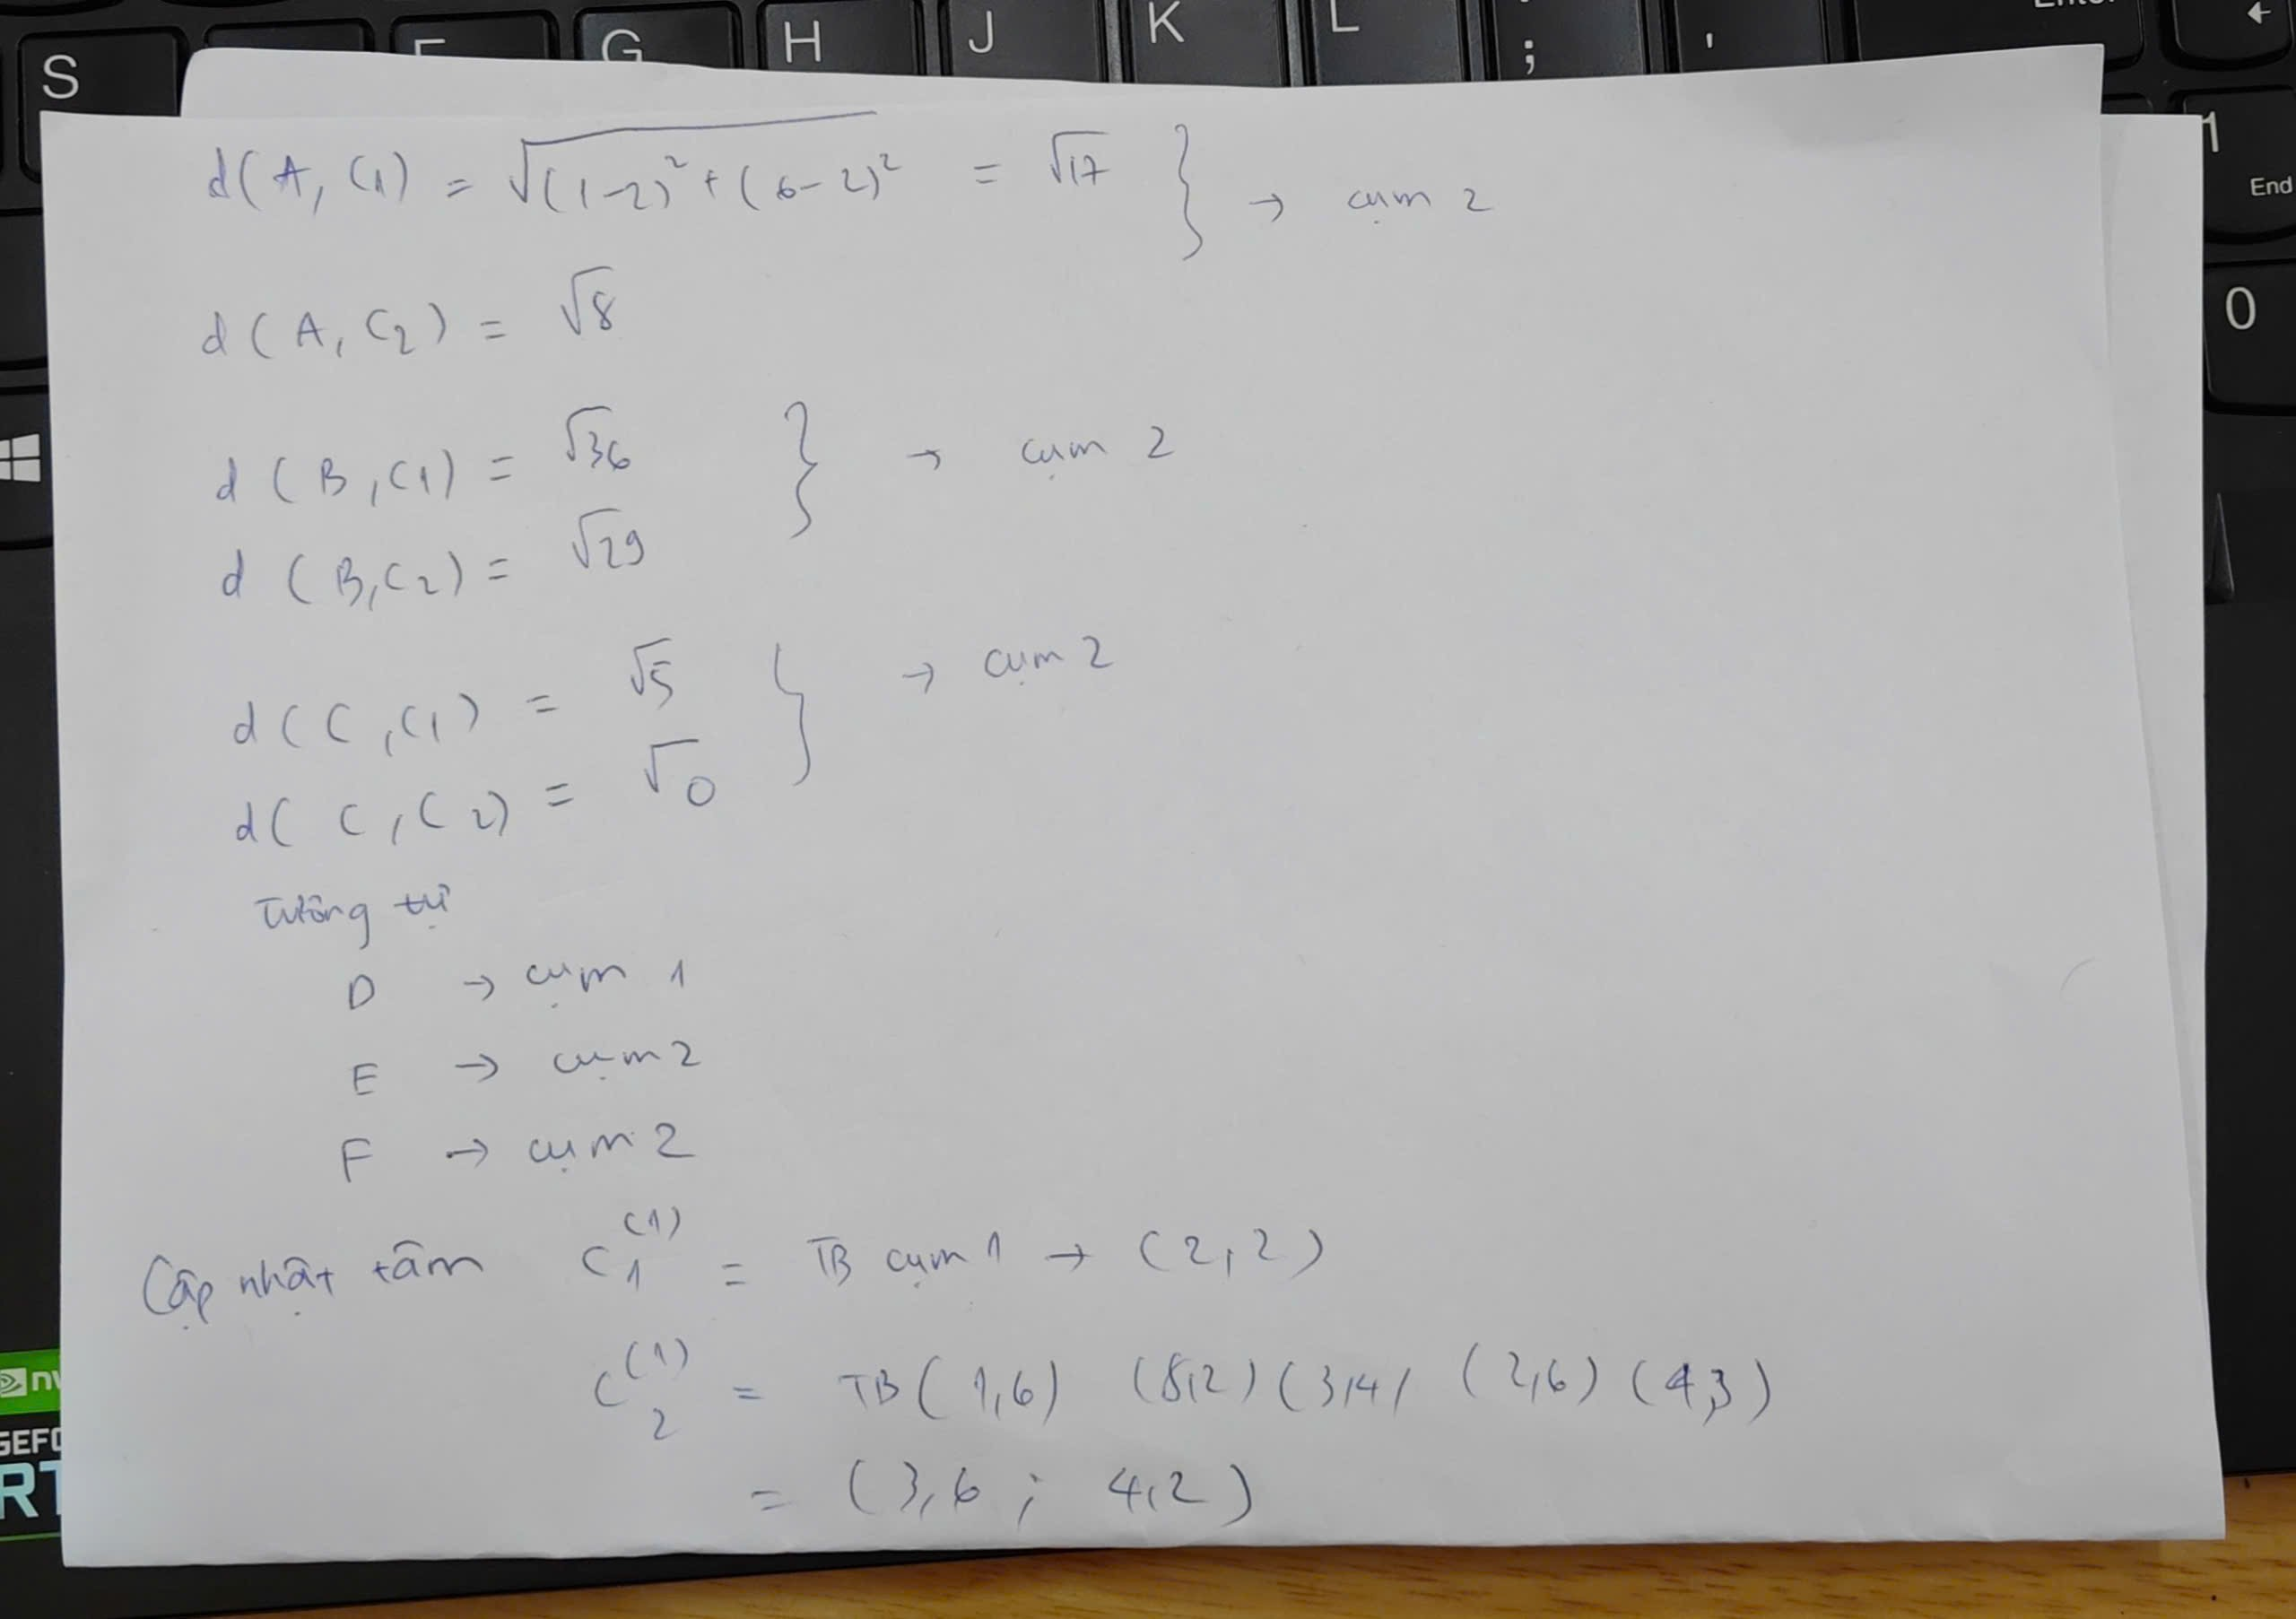 S F G H J K L ; '
Enter
1
End
0
d(A, C1) = √(1-2)² + (6-2)² = √17 } → cụm 2
d(A, C2) = √8
d(B, C1) = √36 } → cụm 2
d(B, C2) = √29
d(C, C1) = √5 } → cụm 2
d(C, C2) = √0
Tương tự
D → cụm 1
E → cụm 2
F → cụm 2
Cập nhật tâm C₁⁽¹⁾ = TB cụm 1 → (2,2)
C₂⁽¹⁾ = TB (1,6) (8,2) (3,4) (2,6) (4,3)
= (3,6 ; 4,2)